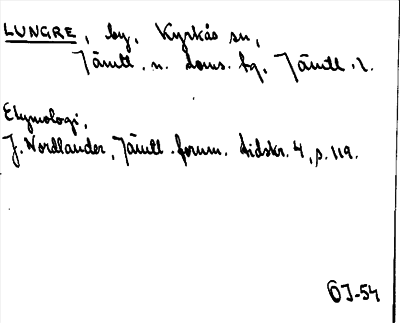 LUNGRE, by, Kyrkås sn,
Jämtl. n. doms. fg, Jämtl. l.
Etymologi,
J. Nordlander, Jämtl. fornm. tidskr. 4, p. 119.
ÖJ-54